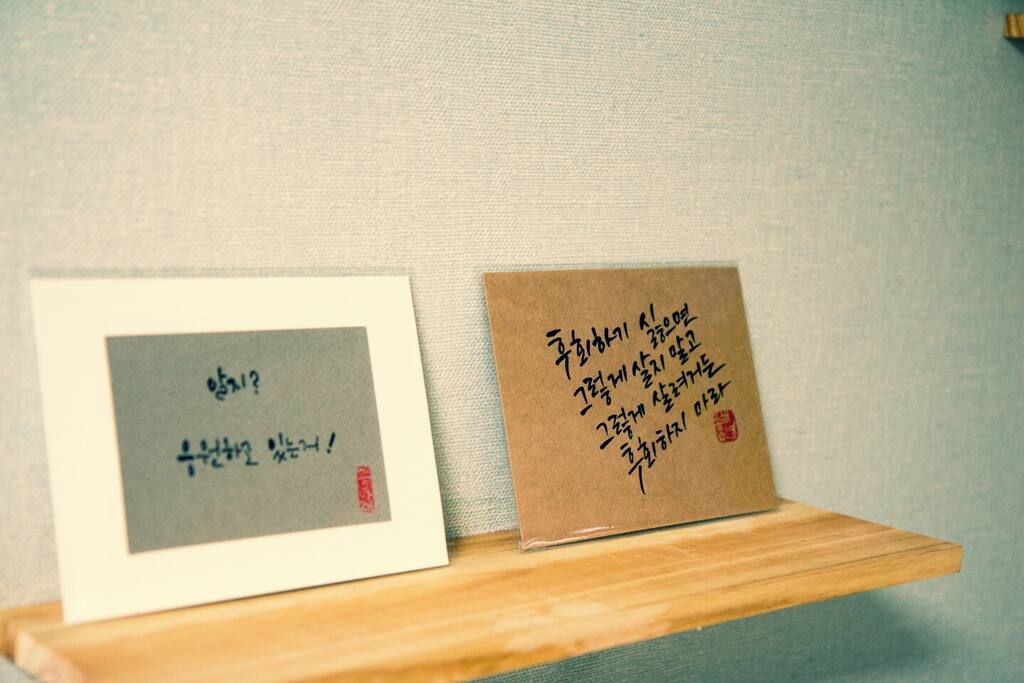 알지?
응원하고 있는거!
후회하기 싫으면
그렇게 살지 말고
그렇게 살려거든
후회하지 마라